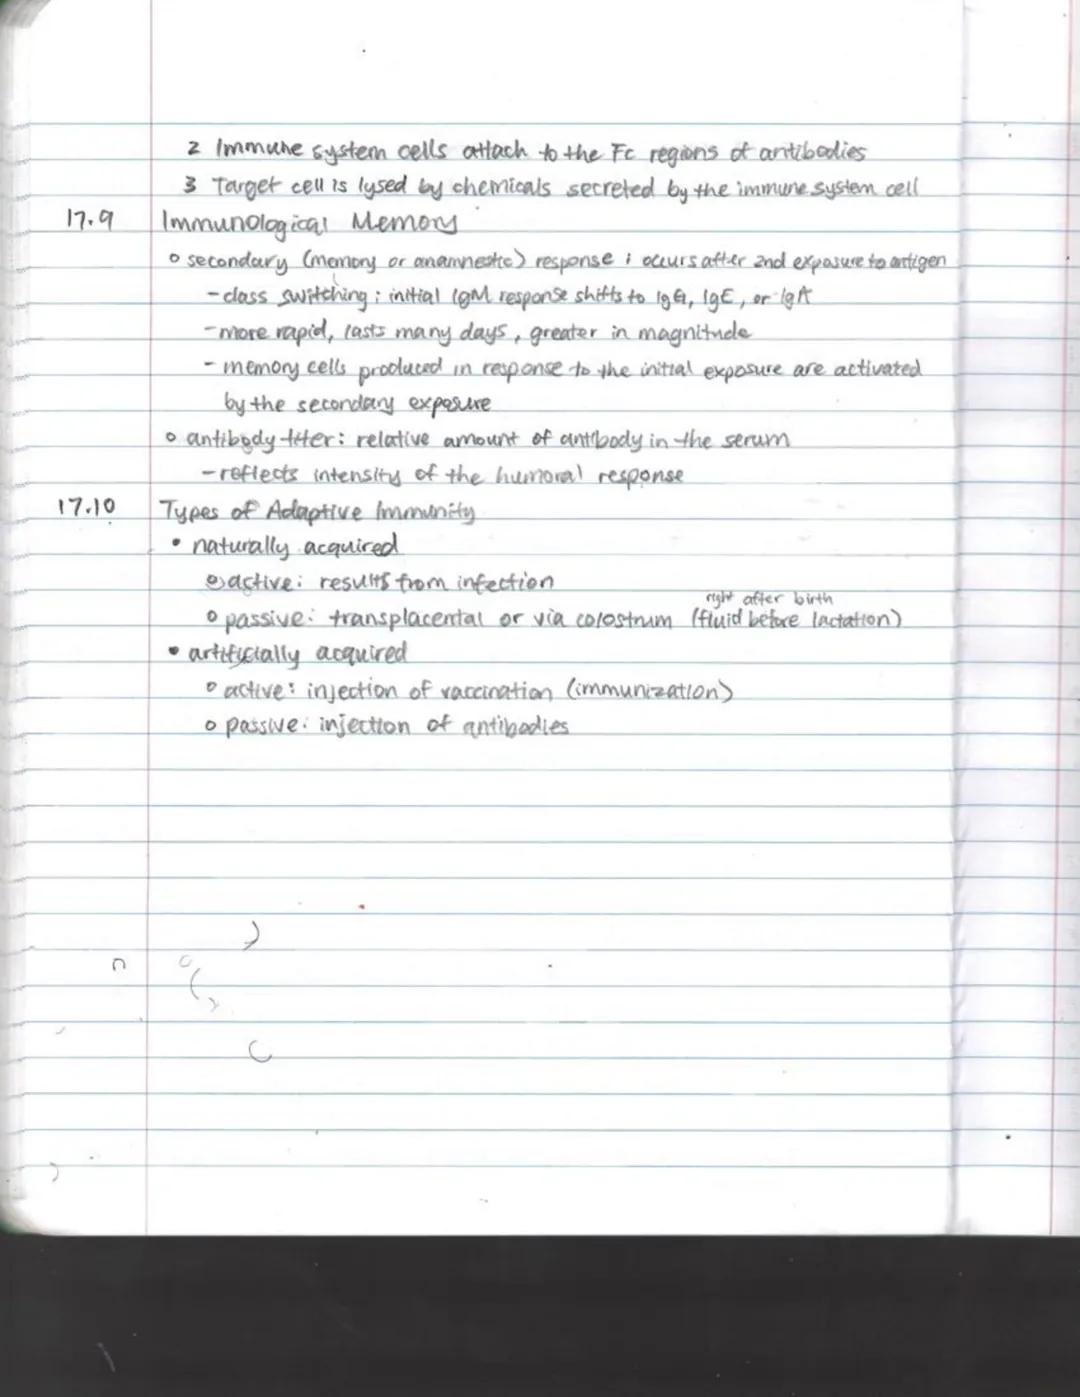 2 Immune system cells attach to the Fc regions of antibodies
3 Target cell is lysed by chemicals secreted by the immune system cell
17.9 Immunological Memory
o secondary (memory or anamnestic) response : occurs after 2nd exposure to antigen
- class switching : initial IgM response shifts to IgG, IgE, or IgA
- more rapid, lasts many days, greater in magnitude
- memory cells produced in response to the initial exposure are activated
by the secondary exposure
o antibody titer: relative amount of antibody in the serum
- reflects intensity of the humoral response
17.10 Types of Adaptive Immunity
• naturally acquired
o active: results from infection
right after birth
o passive: transplacental or via colostrum (fluid before lactation)
• artificially acquired
o active: injection of vaccination (immunization)
o passive: injection of antibodies